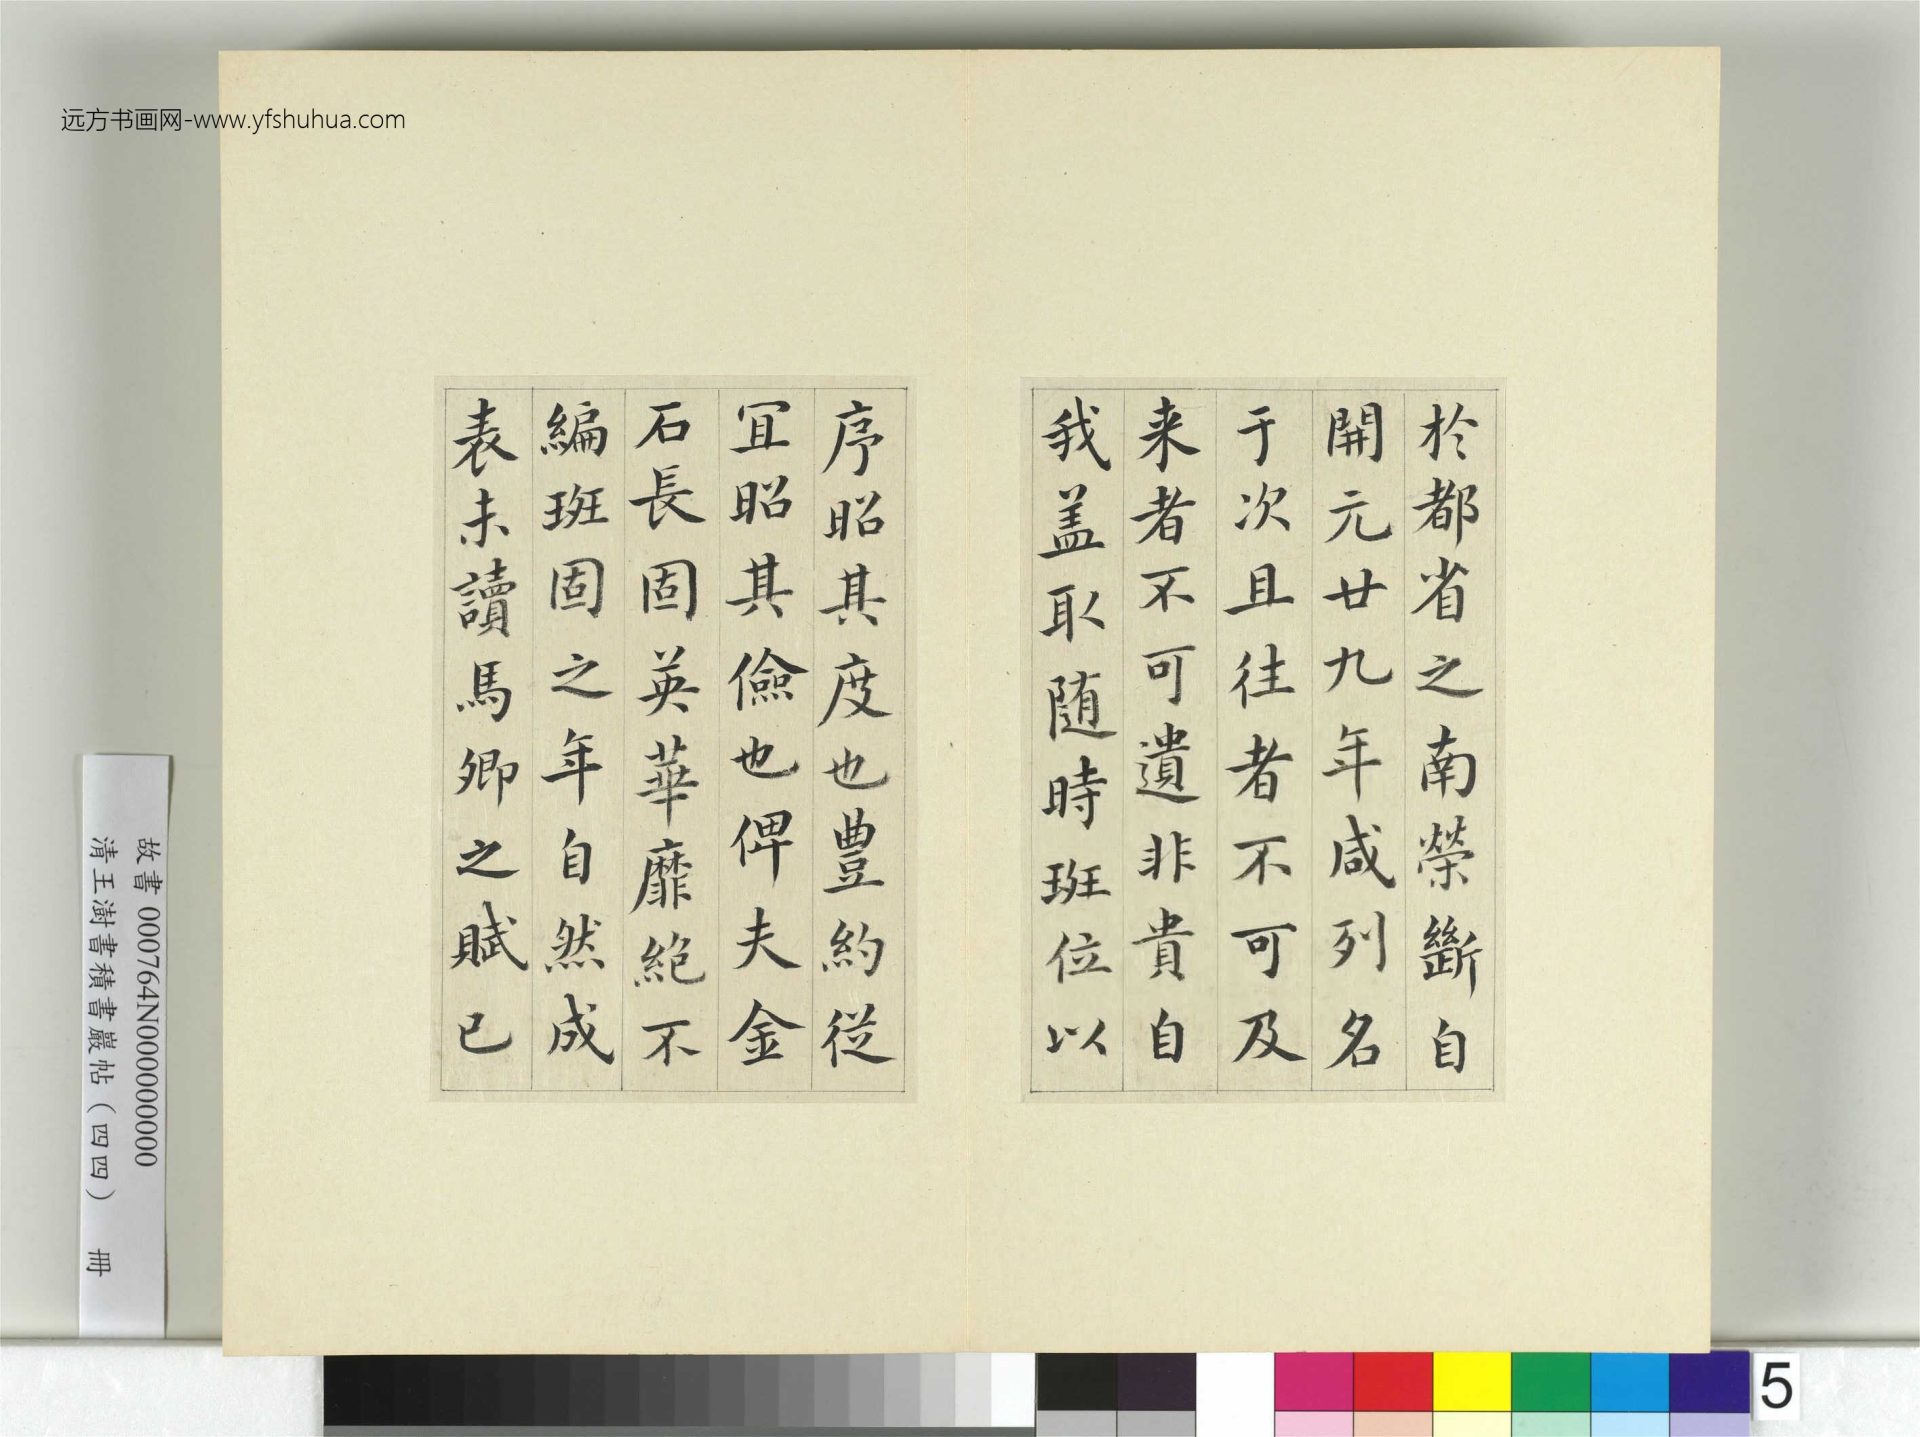 远方书画网-www.yfshuhua.com
於都省之南榮斷自
開元廿九年咸列名
于次且往者不可及
来者不可遺非貴自
我盖取随時班位以
序昭其度也豊約従
冝昭其儉也俾夫金
石長固英華靡絶不
編班固之年自然成
表未讀馬卿之賦已
故書 000764N000000000
清王澍書積書巖帖(四四) 冊
5